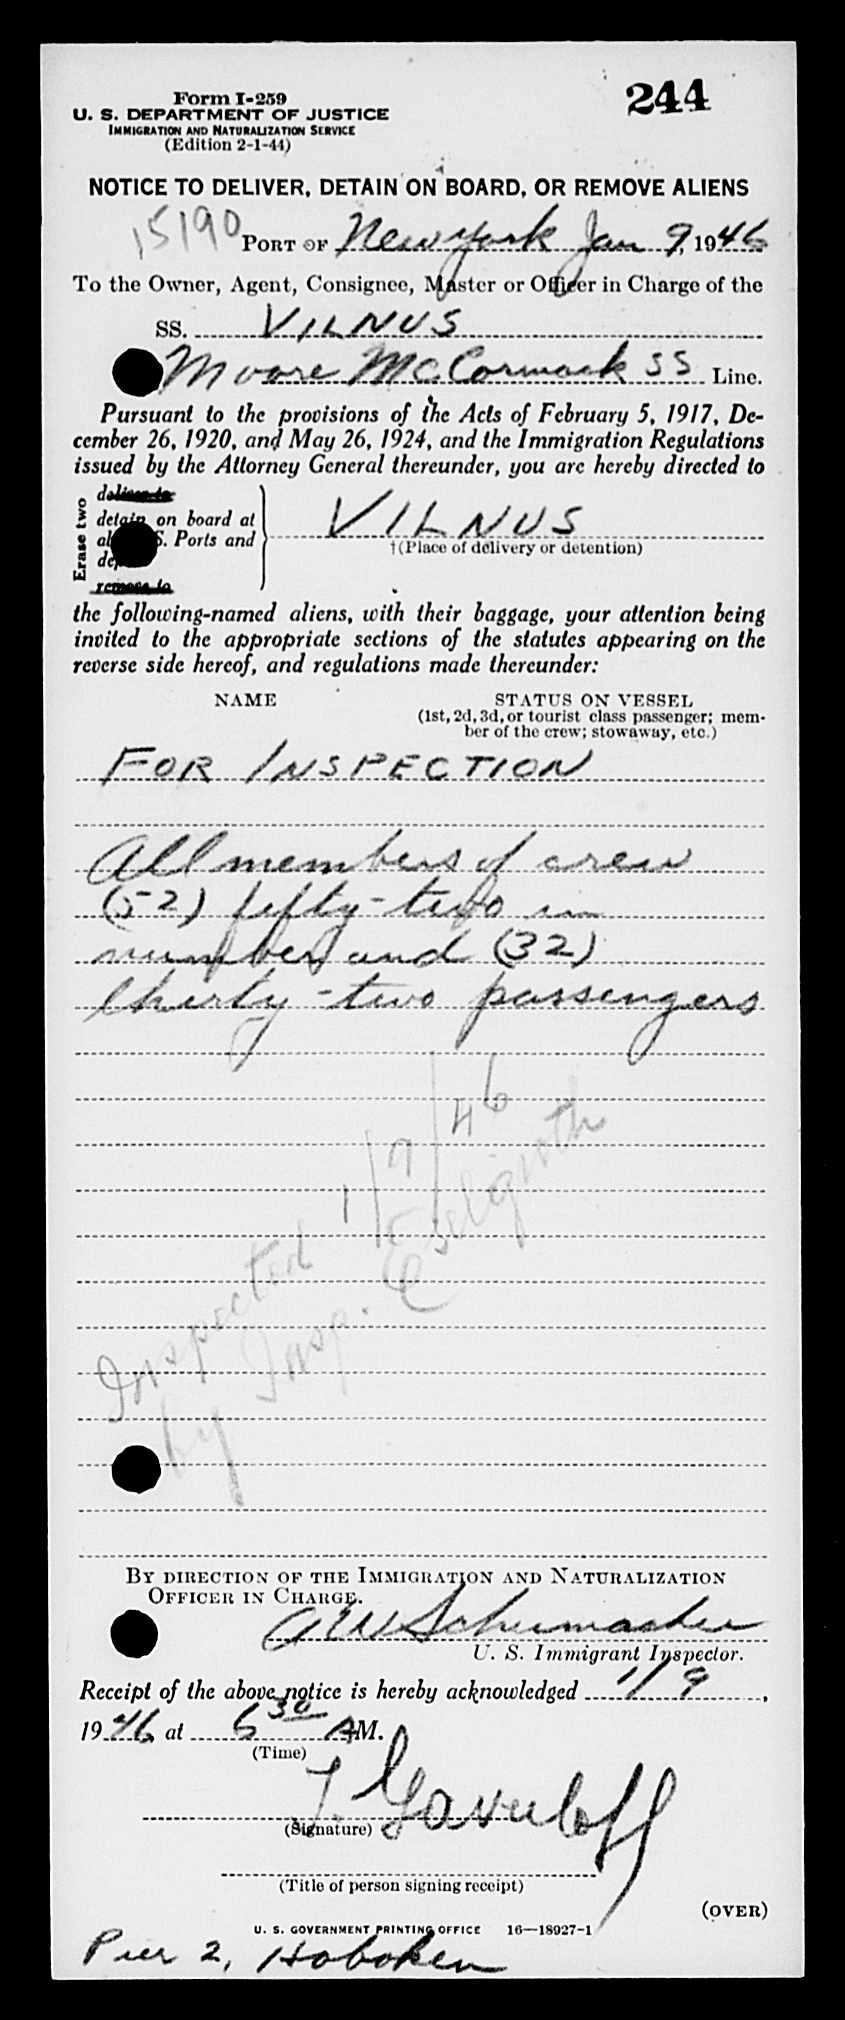 Form I-259
244
U. S. DEPARTMENT OF JUSTICE
IMMIGRATION AND NATURALIZATION SERVICE
(Edition 2-1-44)
NOTICE TO DELIVER, DETAIN ON BOARD, OR REMOVE ALIENS
15190 PORT OF New York Jan 9, 1946
To the Owner, Agent, Consignee, Master or Officer in Charge of the
SS. VILNUS
Moore McCormack SS Line.
Pursuant to the provisions of the Acts of February 5, 1917, De-
cember 26, 1920, and May 26, 1924, and the Immigration Regulations
issued by the Attorney General thereunder, you are hereby directed to
Erase two
deliver to
detain on board at
S. Ports and
remove to
VILNUS
†(Place of delivery or detention)
the following-named aliens, with their baggage, your attention being
invited to the appropriate sections of the statutes appearing on the
reverse side hereof, and regulations made thereunder:
NAME STATUS ON VESSEL
(1st, 2d, 3d, or tourist class passenger; mem-
ber of the crew; stowaway, etc.)
FOR INSPECTION
All members of crew
(52) fifty-two in
number and (32)
thirty-two passengers
Inspected 1/9/46
by Insp. Eselgroth
BY DIRECTION OF THE IMMIGRATION AND NATURALIZATION
OFFICER IN CHARGE.
A W Schumacher
U. S. Immigrant Inspector.
Receipt of the above notice is hereby acknowledged 1/9,
1946 at 6 30 AM.
(Time)
(Signature)
(Title of person signing receipt)
(OVER)
U. S. GOVERNMENT PRINTING OFFICE 16—18927-1
Pier 2, Hoboken